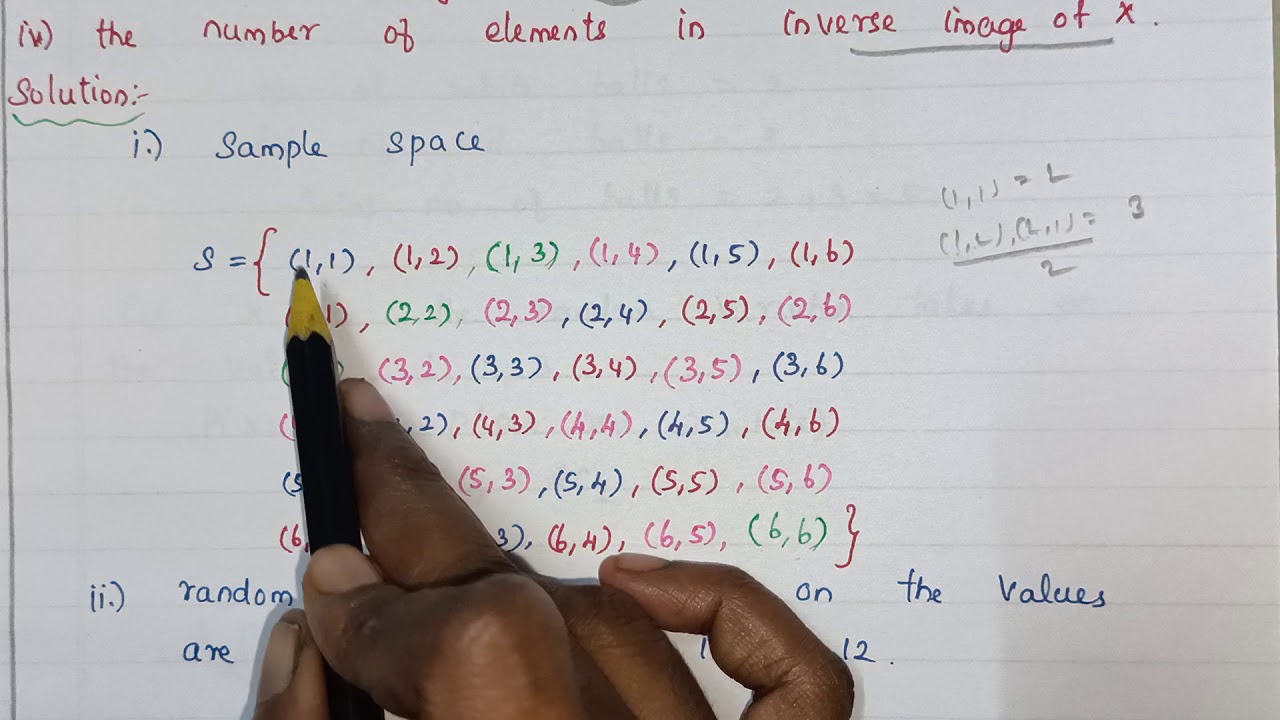 iv) the number of elements in inverse image of X.
Solution:-
i.) Sample space
(1,1) = 2
(1,2),(2,1) = 3
2
S = { (1,1), (1,2), (1,3), (1,4), (1,5), (1,6)
(2,2), (2,3), (2,4), (2,5), (2,6)
(3,2), (3,3), (3,4), (3,5), (3,6)
(4,3), (4,4), (4,5), (4,6)
(5,3), (5,4), (5,5), (5,6)
(6,4), (6,5), (6,6) }
ii.) random on the values
are 12.